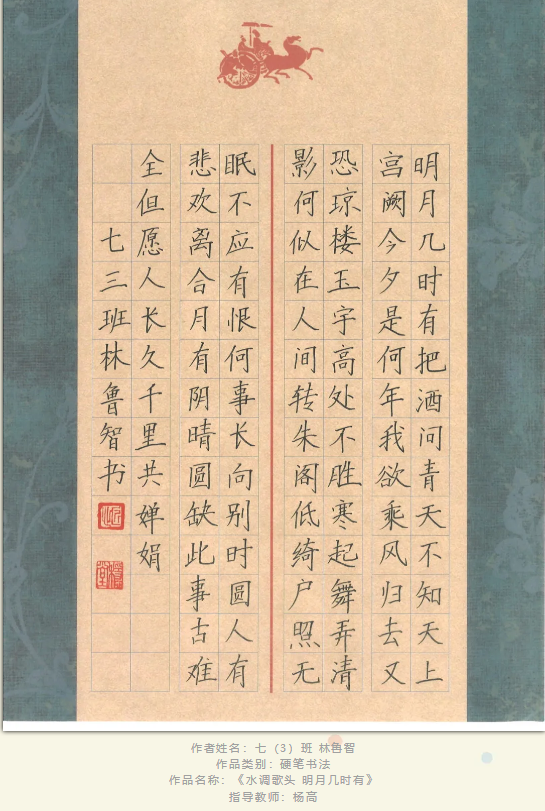 明月几时有把酒问青天不知天上
宫阙今夕是何年我欲乘风归去又
恐琼楼玉宇高处不胜寒起舞弄清
影何似在人间转朱阁低绮户照无
眠不应有恨何事长向别时圆人有
悲欢离合月有阴晴圆缺此事古难
全但愿人长久千里共婵娟
七三班林鲁智书
作者姓名：七（3）班 林鲁智
作品类别：硬笔书法
作品名称：《水调歌头 明月几时有》
指导教师：杨高